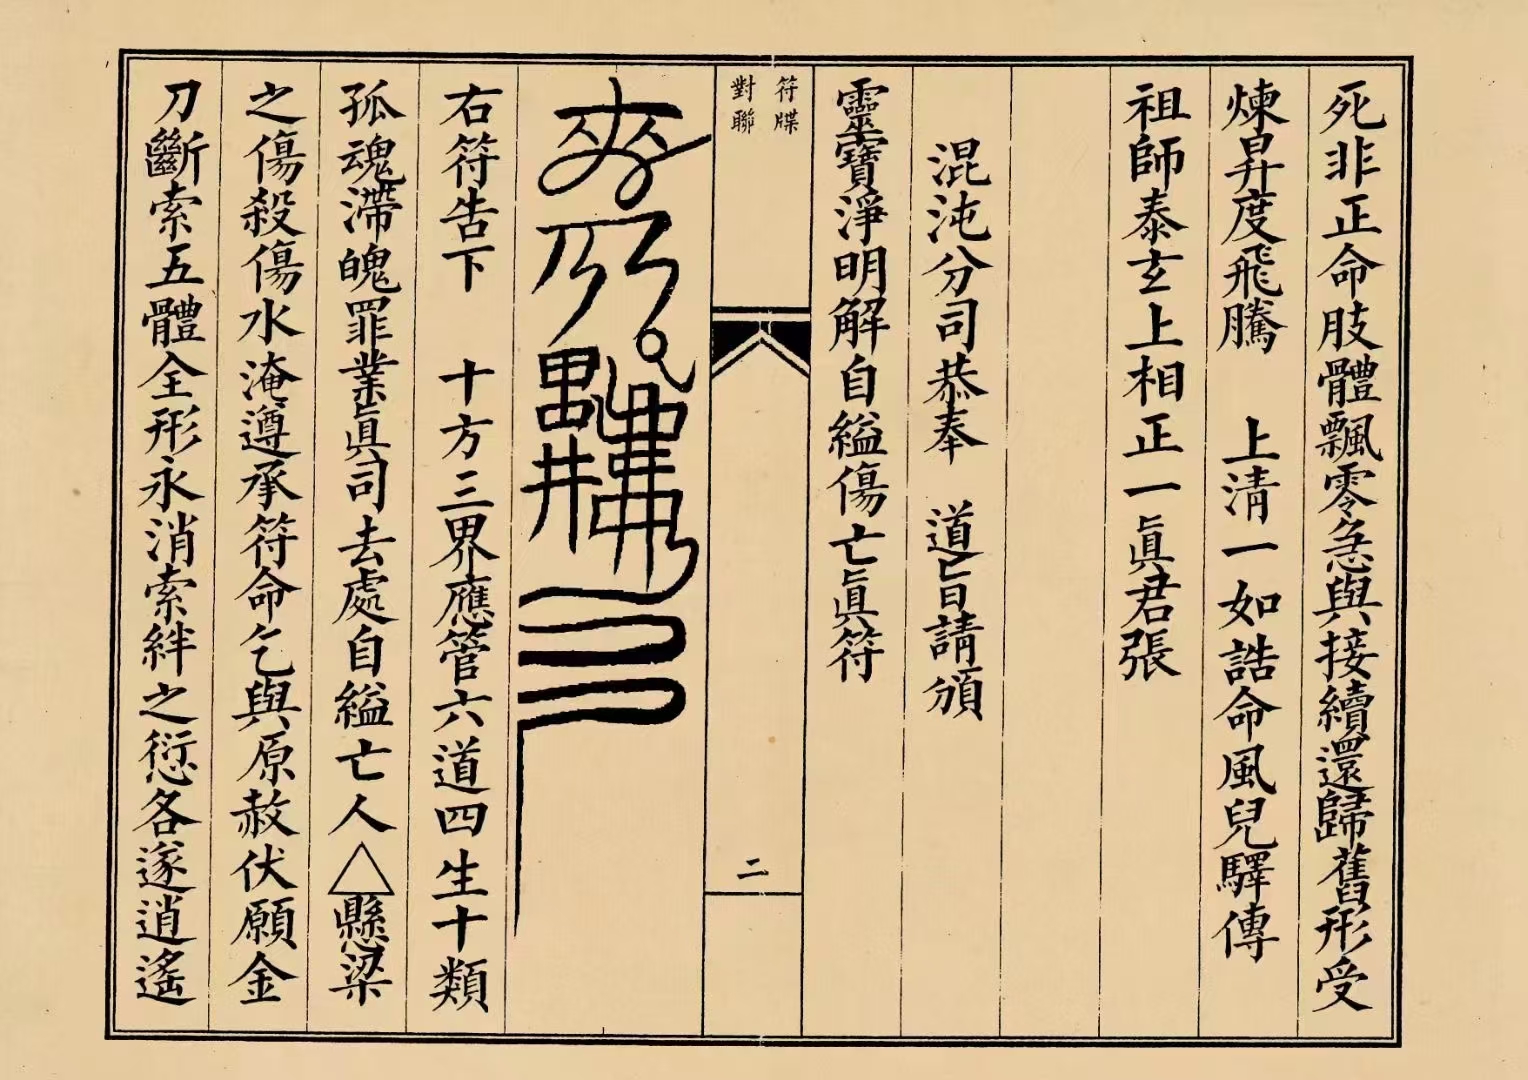 死非正命肢體飄零急與接續還歸舊形受
煉昇度飛騰　上清一如誥命風兒驛傳
祖師泰玄上相正一眞君張
混沌分司恭奉　道旨請頒
靈寶淨明解自縊傷亡眞符
符牒
對聯
二
右符告下　十方三界應管六道四生十類
孤魂滯魄罪業眞司去處自縊亡人△懸梁
之傷殺傷水淹遵承符命乞與原赦伏願金
刀斷索五體全形永消索絆之愆各遂逍遙